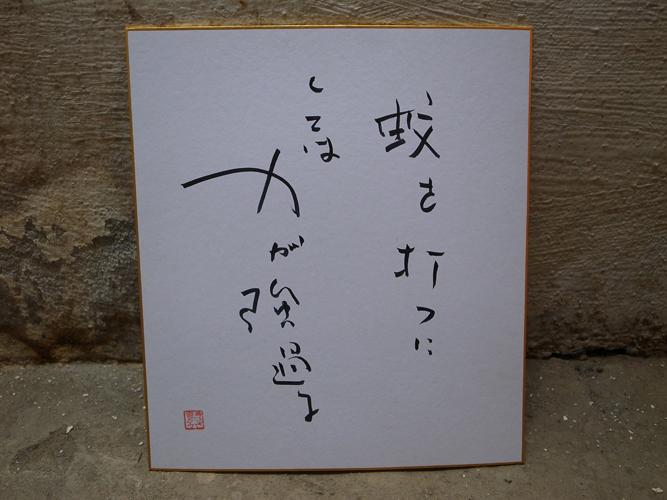 蚊を打つに
しては
力が強過る